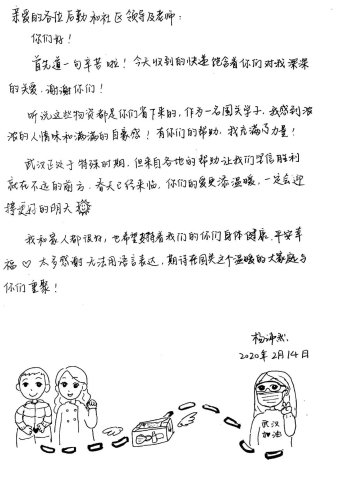 亲爱的各位后勤和社区领导及老师：
你们好！
首先道一句辛苦啦！今天收到的快递饱含着你们对我深深
的关爱，谢谢你们！
听说这些物资都是你们省下来的，作为一名国关学子，我感到浓
浓的人情味和满满的自豪感！有你们的帮助，我充满了力量！
武汉正处于特殊时期，但来自各地的帮助让我们坚信胜利
就在不远的前方。春天已经来临，你们的爱更添温暖，一定会迎
接更好的明天
我和家人都很好，也希望支持着我们的你们身体健康，平安幸
福♡ 太多感谢无法用语言表达，期待在国关这个温暖的大家庭与
你们重聚！
杨
2020年2月14日
武汉
加油